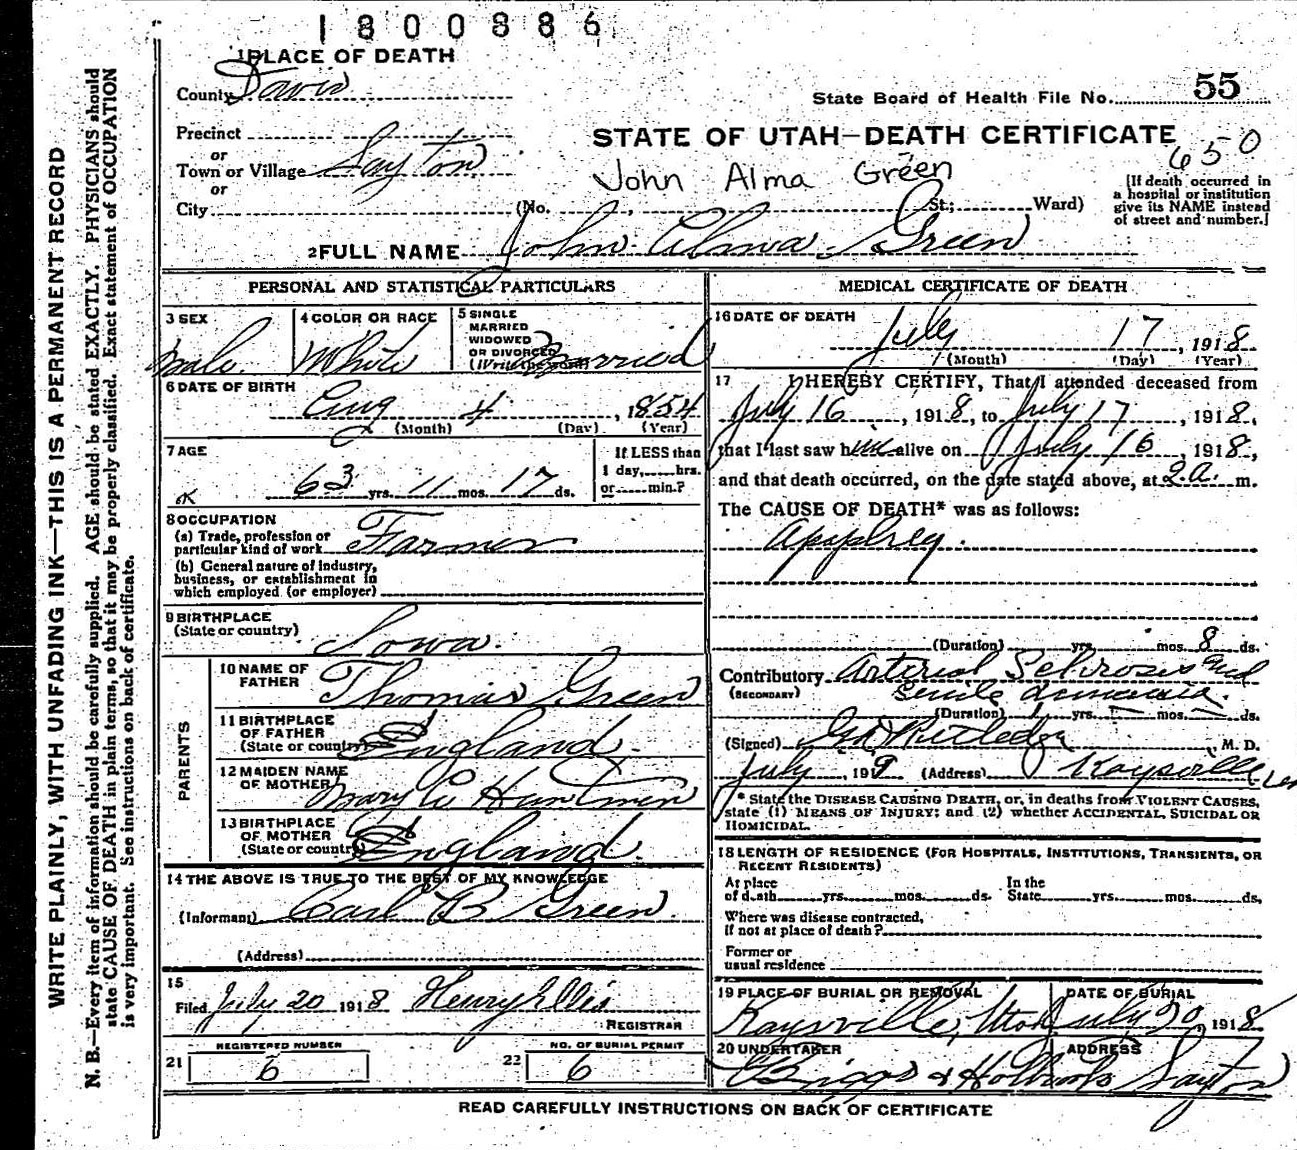 1800886
1 PLACE OF DEATH
County Davis
State Board of Health File No. 55
Precinct
or
Town or Village Layton
or
City (No. , St.; Ward)
STATE OF UTAH—DEATH CERTIFICATE
650
John Alma Green
[If death occurred in a hospital or institution give its NAME instead of street and number.]
2 FULL NAME John Alma Green
WRITE PLAINLY, WITH UNFADING INK—THIS IS A PERMANENT RECORD
N. B.—Every item of information should be carefully supplied. AGE should be stated EXACTLY. PHYSICIANS should
state CAUSE OF DEATH in plain terms, so that it may be properly classified. Exact statement of OCCUPATION
is very important. See instructions on back of certificate.
PERSONAL AND STATISTICAL PARTICULARS
3 SEX
male
4 COLOR OR RACE
White
5 SINGLE
MARRIED
WIDOWED
OR DIVORCED
(Write the word)
Married
6 DATE OF BIRTH
Aug 4, 1854
(Month) (Day) (Year)
7 AGE
63 yrs. 11 mos. 17 ds.
If LESS than
1 day, hrs.
or min.?
OK
8 OCCUPATION
(a) Trade, profession or
particular kind of work Farmer
(b) General nature of industry,
business, or establishment in
which employed (or employer)
9 BIRTHPLACE
(State or country) Iowa.
PARENTS
10 NAME OF
FATHER Thomas Green
11 BIRTHPLACE
OF FATHER
(State or country) England.
12 MAIDEN NAME
OF MOTHER Mary
13 BIRTHPLACE
OF MOTHER
(State or country) England.
14 THE ABOVE IS TRUE TO THE BEST OF MY KNOWLEDGE
(Informant) Carl B Green.
(Address)
15
Filed July 20 1918 Henry Ellis
REGISTRAR
21 REGISTERED NUMBER
6
22 NO. OF BURIAL PERMIT
6
MEDICAL CERTIFICATE OF DEATH
16 DATE OF DEATH
July 17, 1918
(Month) (Day) (Year)
17 I HEREBY CERTIFY, That I attended deceased from
July 16, 1918, to July 17, 1918,
that I last saw him alive on July 16, 1918,
and that death occurred, on the date stated above, at 2 a. m.
The CAUSE OF DEATH* was as follows:
(Duration) yrs. mos. 8 ds.
Contributory Arterial Sclerosis and
(SECONDARY) senile
(Duration) 1 yrs. — mos. — ds.
(Signed) Rutledge M. D.
July, 191 (Address) Kaysville
* State the DISEASE CAUSING DEATH, or, in deaths from VIOLENT CAUSES,
state (1) MEANS OF INJURY; and (2) whether ACCIDENTAL, SUICIDAL OR
HOMICIDAL.
18 LENGTH OF RESIDENCE (FOR HOSPITALS, INSTITUTIONS, TRANSIENTS, OR
RECENT RESIDENTS)
At place
of death yrs. mos. ds.
In the
State yrs. mos. ds.
Where was disease contracted,
if not at place of death?
Former or
usual residence
19 PLACE OF BURIAL OR REMOVAL
Kaysville, Utah
DATE OF BURIAL
July 20, 1918
20 UNDERTAKER
Briggs & Holbrook
ADDRESS
Layton
READ CAREFULLY INSTRUCTIONS ON BACK OF CERTIFICATE